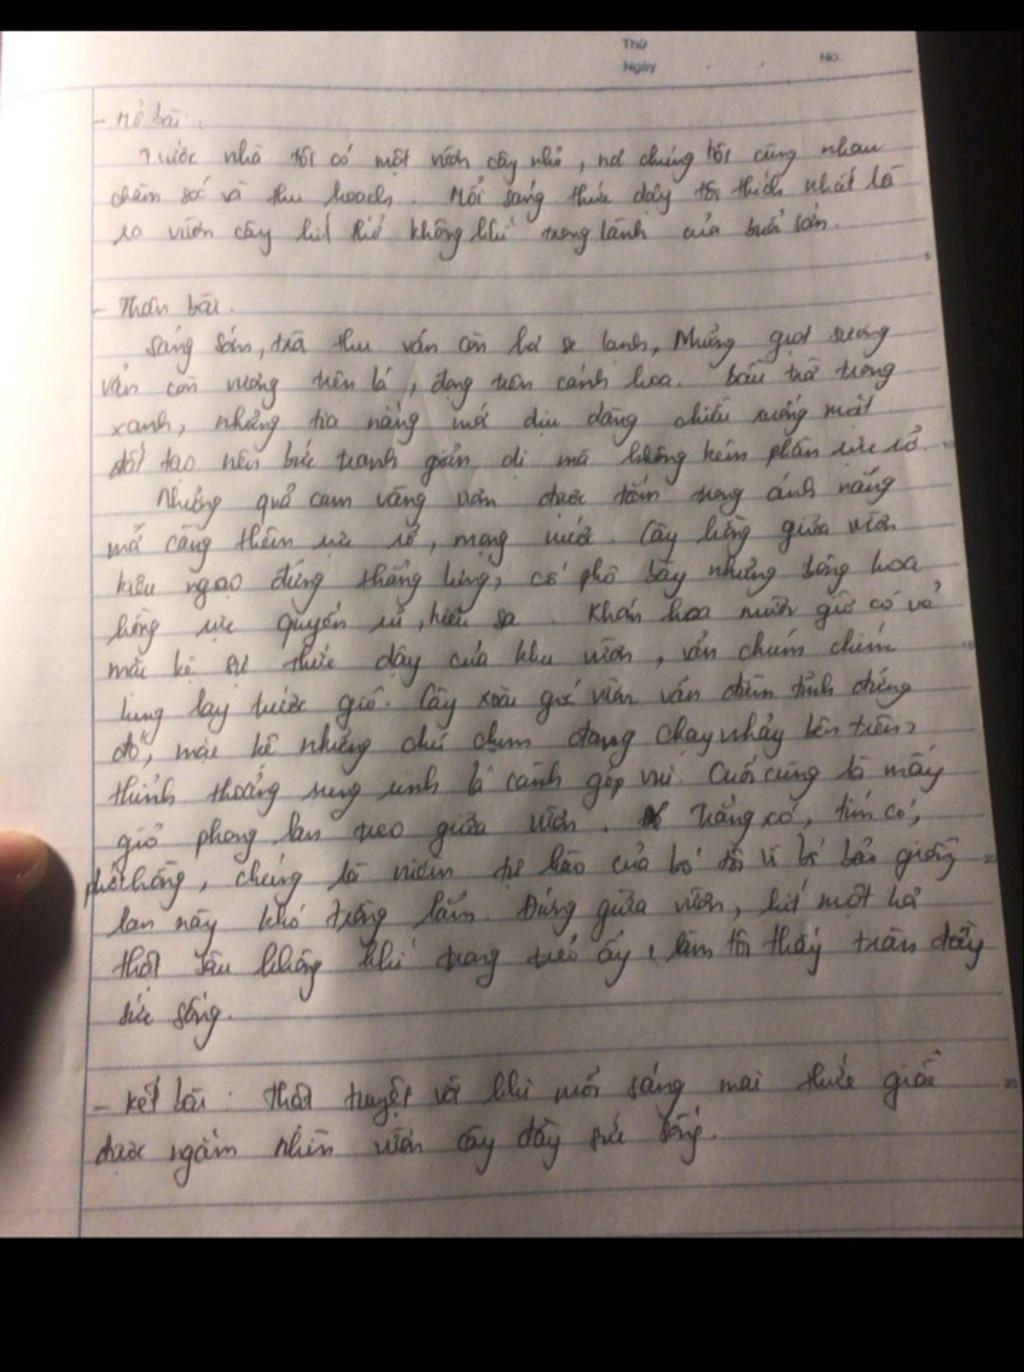 Thứ
Ngày No.
- Mở bài:
Trước nhà tôi có một vườn cây nhỏ, nơi chúng tôi cùng nhau
chăm sóc và thu hoạch. Mỗi sáng thức dậy tôi thích nhất là
ra vườn cây hít thở không khí trong lành của buổi sớm.
5
- Thân bài.
Sáng sớm, trời thu vẫn còn hơi se lạnh, Những giọt sương
vẫn còn vương trên lá, đọng trên cánh hoa. bầu trời trong
xanh, những tia nắng mới dịu dàng chiếu xuống mặt
đất tạo nên bức tranh giản dị mà không kém phần rực rỡ. 10
Những quả cam vàng ươm được tắm trong ánh nắng
mà càng thêm rực rỡ, mọng nước. Cây hồng giữa vườn
kiêu ngạo đứng thẳng lưng, cố phô bày những bông hoa
hồng rực quyến rũ, kiêu sa. Khóm hoa mười giờ có vẻ
mặc kệ sự thức dậy của khu vườn, vẫn chúm chím 15
lung lay trước gió. Cây xoài góc vườn vẫn điềm tĩnh đứng
đó, mặc kệ những chú chim đang chạy nhảy bên trên,
thỉnh thoảng rung rinh lá cành góp vui. Cuối cùng là mấy
giỏ phong lan treo giữa vườn. Trắng có, tím có,
phớt hồng, chúng là niềm tự hào của bố tôi vì bố bảo giống 20
lan này khó trồng lắm. Đứng giữa vườn, hít một hơi
thật sâu không khí trong trẻo ấy, làm tôi thấy tràn đầy
sức sống.
- Kết bài: Thật tuyệt vời khi mỗi sáng mai thức giấc 25
được ngắm nhìn vườn cây đầy sức sống.